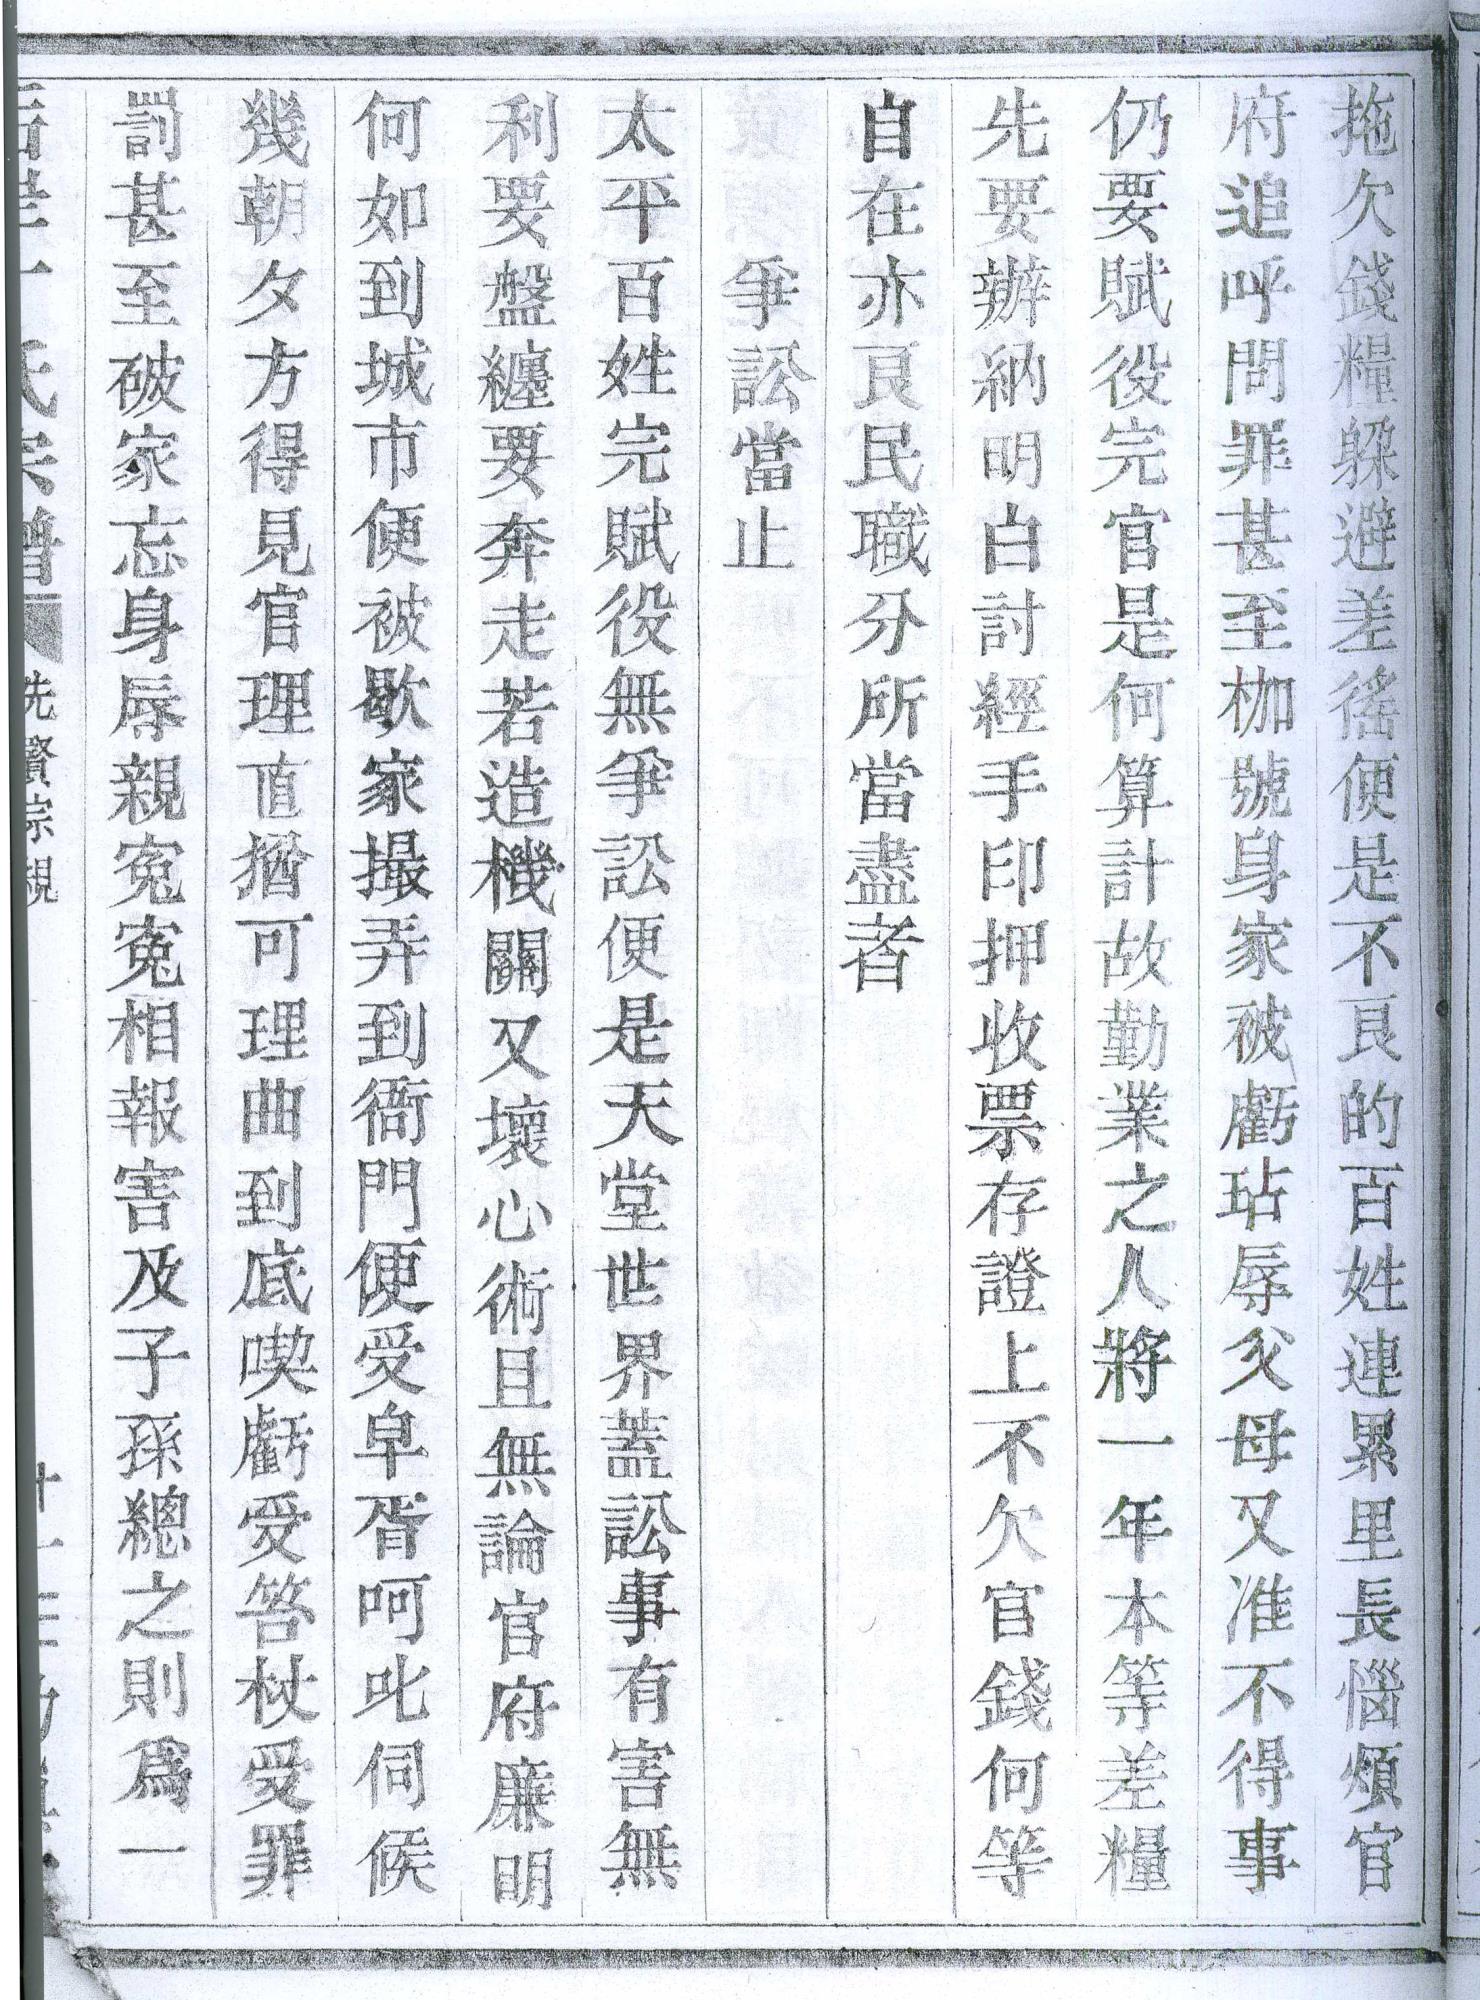 拖欠錢糧躲避差徭便是不良的百姓連累里長惱煩官
府追呼問罪甚至枷號身家被虧玷辱父母又准不得事
仍要賦役完官是何算計故勤業之人將一年本等差糧
先要辦納明白討經手印押收票存證上不欠官錢何等
自在亦良民職分所當盡者
爭訟當止
太平百姓完賦役無爭訟便是天堂世界蓋訟事有害無
利要盤纏要奔走若造機關又壞心術且無論官府廉明
何如到城市便被歇家撮弄到衙門便受皁胥呵叱伺候
幾朝夕方得見官理直猶可理曲到底喫虧受笞杖受罪
罰甚至破家忘身辱親寃寃相報害及子孫總之則爲一
氏宗譜 先賢宗規